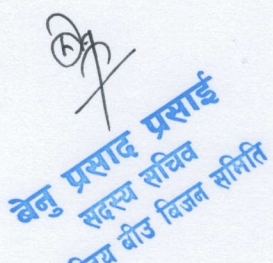 बेनु प्रसाद प्रसाई
सदस्य सचिव
बीउ विजन समिति